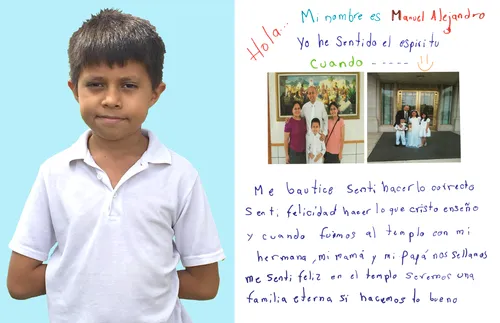 Hola... Mi nombre es Manuel Alejandro
Yo he sentido el espiritu
Cuando -----
Me bautice senti hacer lo correcto
Senti felicidad hacer lo que cristo enseño
y cuando fuimos al templo con mi
hermana, mi mamá y mi papá nos sellamos
me senti feliz en el templo seremos una
familia eterna si hacemos lo bueno